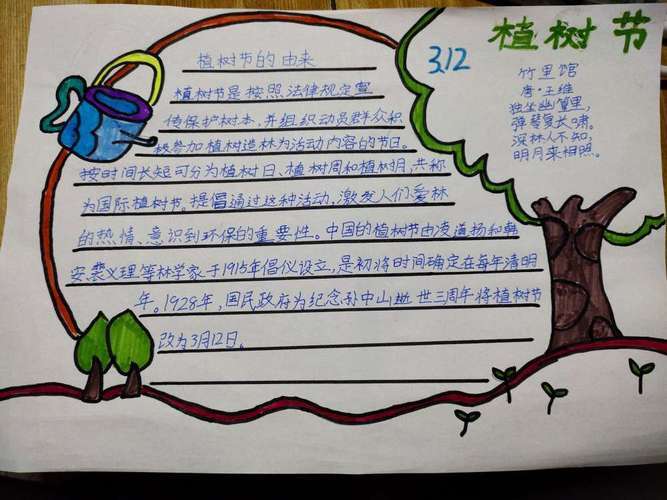 植树节
3.12
竹里馆
唐·王维
独坐幽篁里,
弹琴复长啸。
深林人不知,
明月来相照。
植树节的由来
植树节是按照法律规定宣
传保护树木,并组织动员群众积
极参加植树造林为活动内容的节日。
按时间长短可分为植树日、植树周和植树月,共称
为国际植树节。提倡通过这种活动,激发人们爱林
的热情、意识到环保的重要性。中国的植树节由凌道扬和韩
安、裴义理等林学家于1915年倡仪设立,是初将时间确定在每年清明
年。1928年,国民政府为纪念孙中山逝世三周年将植树节
改为3月12日。